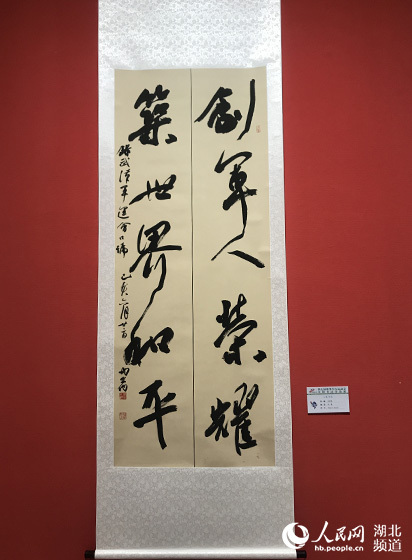 创军人荣耀
筑世界和平
录武汉军运会口号 己亥六月廿二日
人民网 湖北频道
hb.people.com.cn